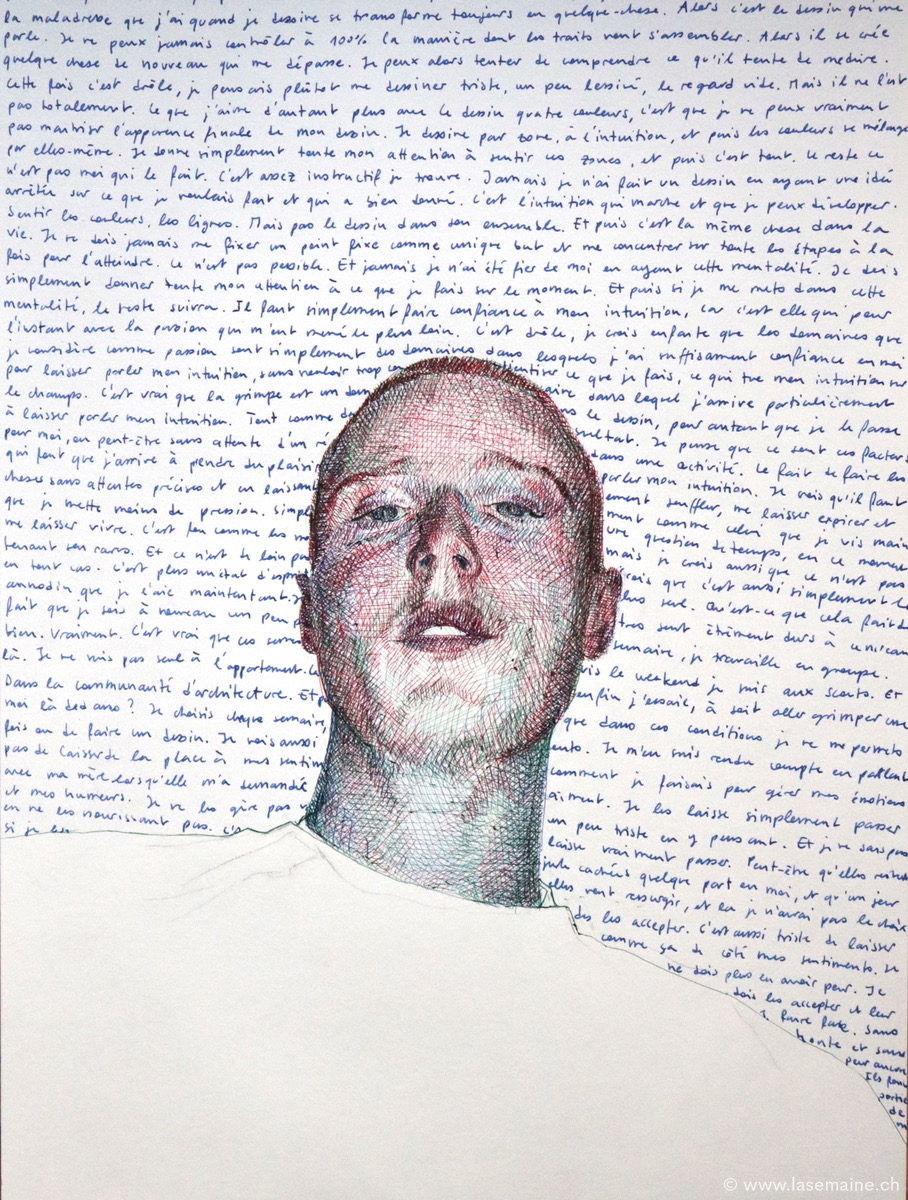 la maladresse que j'ai quand je dessine se transforme toujours en quelque-chose. Alors c'est le dessin qui me
parle. Je ne peux jamais contrôler à 100% la manière dont les traits vont s'assembler. Alors il se crée
quelque chose de nouveau qui me dépasse. Je peux alors tenter de comprendre ce qu'il tente de me dire.
Cette fois c'est drôle, je pensais plutôt me dessiner triste, un peu lessivé, le regard vide. Mais il ne l'est
pas totalement. Ce que j'aime d'autant plus avec le dessin quatre couleurs, c'est que je ne peux vraiment
pas maîtriser l'apparence finale de mon dessin. Je dessine par zone, à l'intuition, et puis les couleurs se mélange
par elles-même. Je donne simplement toute mon attention à sentir ces zones, et puis c'est tout. Le reste ce
n'est pas moi qui le fait. C'est assez instructif je trouve. Jamais je n'ai fait un dessin en ayant une idée
arrêtée sur ce que je voulais faire et qui a bien donné. C'est l'intuition qui marche et que je peux développer.
Sentir les couleurs, les lignes. Mais pas le dessin dans son ensemble. Et puis c'est la même chose dans la
vie. Je ne dois jamais me fixer un point fixe comme unique but et me concentrer sur toute les étapes à la
fois pour l'atteindre. Ce n'est pas possible. Et jamais je n'ai été fier de moi en ayant cette mentalité. Je dois
simplement donner toute mon attention à ce que je fais sur le moment. Et puis si je me mets dans cette
mentalité, le reste suivra. Il faut simplement faire confiance à mon intuition, car c'est elle qui pour
l'instant avec la passion qui m'ont mené le plus loin. C'est drôle, je crois enfaite que les domaines que
je considère comme passion sont simplement des domaines dans lesquels j'ai suffisament confiance en moi
pour laisser parler mon intuition, sans vouloir trop ce que je fais, ce qui tue mon intuition sur
le champs. C'est vrai que la grimpe est un dom aine dans lequel j'arrive particulièrement
à laisser parler mon intuition. Tout comme le dessin, pour autant que je le fasse
pour moi, ou peut-être sans attente d'un ré sultat. Je pense que ce sont ces facteurs
qui font que j'arrive à prendre du plaisir dans une activité. Le fait de faire les
choses sans attentes précises et en laissant parler mon intuition. Je crois qu'il faut
que je mette moins de pression. Simpl ement souffler, me laisser expirer et
me laisser vivre. C'est un comme les mo ment comme celui que je vis main
tenant son rares. Et ce n'est de loin pas question de temps, en ce moment
en tout cas. C'est plus un état d'esp mais je crois aussi que ce n'est pas
annodin que je l'aie maintentant. crois que c'est aussi simplement le
fait que je sois à nouveau un peu plus seul. Qu'est-ce que cela fait du
bien. Vraiment. C'est vrai que ces semai tres sont
là. Je ne suis pas seul à l'appartement. semaine, je travaille en groupe.
Dans la communauté d'architecture. Et le weekend je suis aux scouts. Et
moi là dedans? Je choisis chaque semaine, enfin j'essaie, à soit aller grimper une
fois ou de faire un dessin. Je vois aussi que dans ces conditions je ne me permets
pas de laisser de la place à mes sentim ents. Je m'en suis rendu compte en parlant
avec ma mère lorsqu'elle m'a demandé comment je faisais pour gérer mes émotions
et mes humeurs. Je ne les gère pas v aiment. Je les laisse simplement passer
en ne les nourissant pas. un peu triste en y pensant. Et je ne sais pas
si je les laisse vraiment passer. Peut-être qu'elles restent
juste cachées quelque part en moi, et qu'un jour
elles vont ressurgir, et là je n'aurai pas le choix
des les accepter. C'est aussi triste de laisser
comme ça de côté mes sentiments. Je
ne dois plus en avoir peur. Je
dois les accepter et leur
faire face. Sans
honte et sans
peur aucune
Ils font
partie
de
m
© www.lasemaine.ch